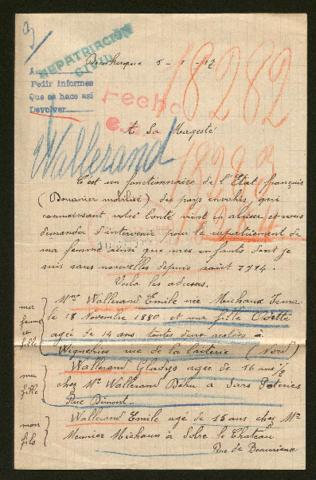 REPATRIACIÓN
CIVIL
Dunkerque 5-1-17
Pedir informes
Que se hace así
Devolver
18282
Fecho
A Sa Majesté
Wallerand
C'est un fonctionnaire de l'Etat français
(Douanier mobilisé) des pays envahis, qui
connaissant votre bonté vient en abuser et vous
demander d'intervenir pour le repatriement de
ma femme ainsi que mes enfants dont je
suis sans nouvelles depuis août 1914.
Voila les adresses.
ma femme
fille
Mme Wallerand Emile née Michaux Irma
le 18 Novembre 1880 et ma fille Odette
agée de 14 ans toutes deux
Wignehies rue de la (Nord)
ma
fille
Wallerand Gladys agée de 16 ans
chez Mr Wallerand à Sars Poteries
Rue
mon
fils
Wallerand Emile agé de 15 ans chez Mr
Meunier Michaux à Solre le Chateau
Rue de Beaurieux